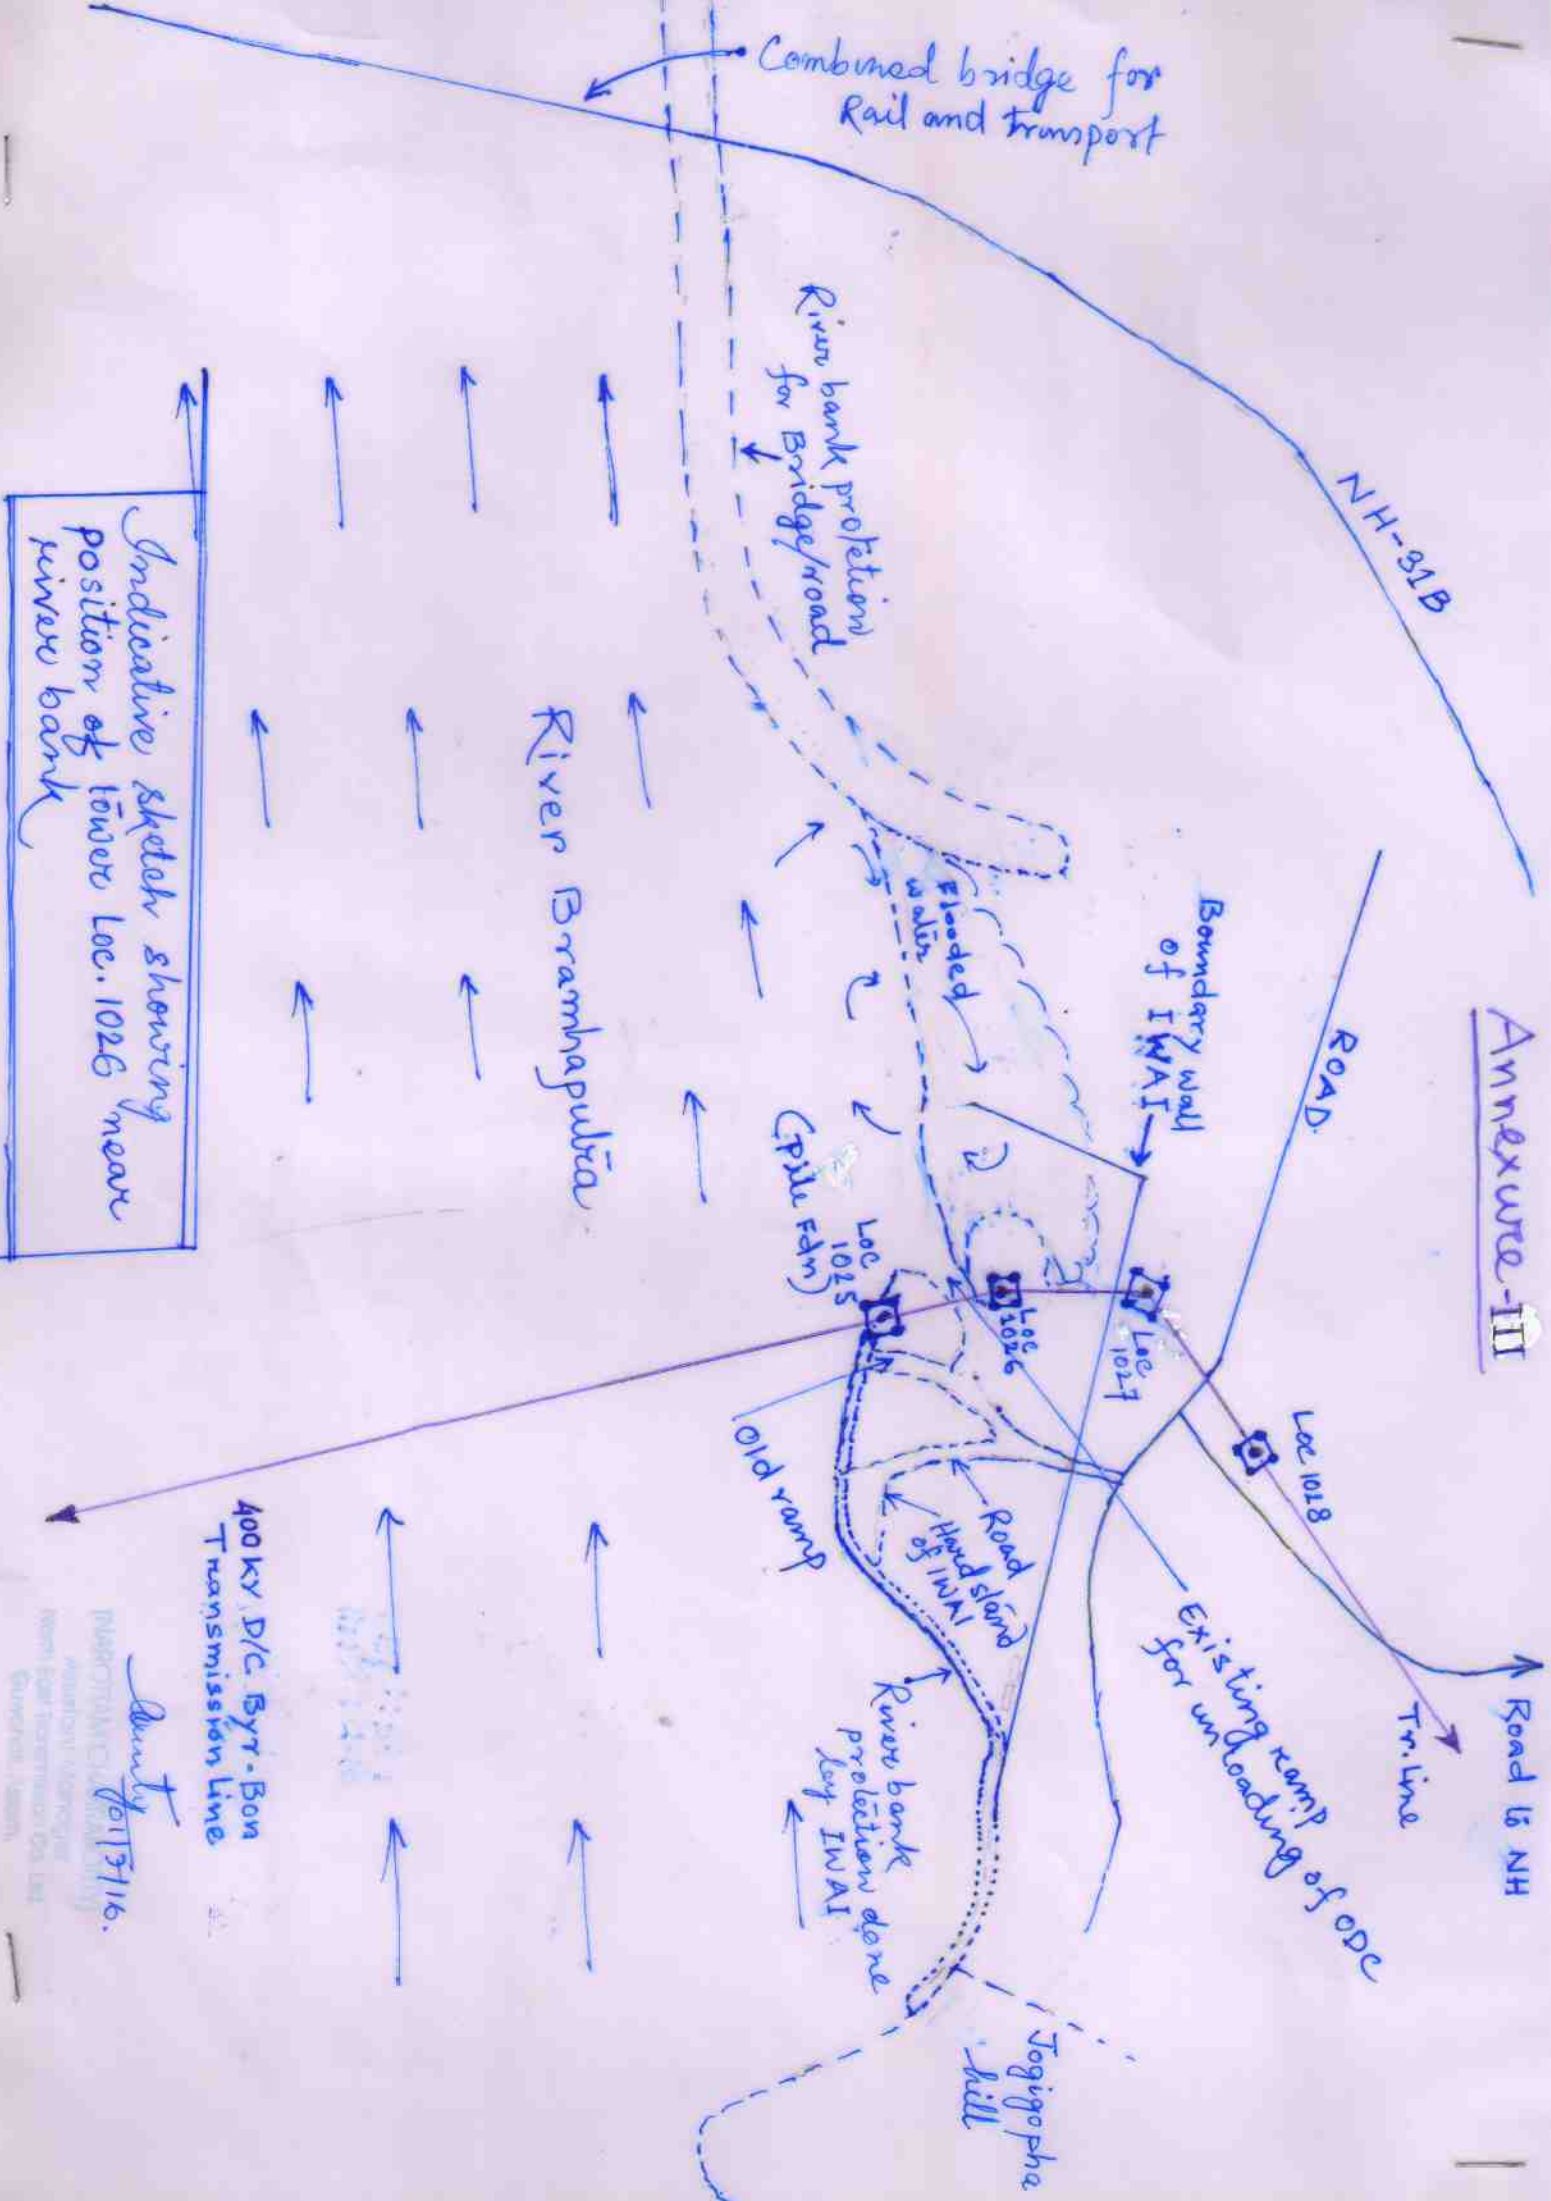 Annexure-III
Combined bridge for
Rail and transport
NH-31B
River bank protetion
for Bridge/road
ROAD
Boundary wall
of IWAI
Flooded
water
Loc 1028
Loc
1027
Loc
1026
Loc
1025
(Pile Fdn)
Road to NH
Tr. Line
Existing ramp
for unloading of ODC
Road
Hardstand
of IWAI
Old ramp
River bank
protection done
by IWAI
Jogigopha
hill
River Bramhaputra
400 KV D/C Byr-Bon
Transmission Line
Indicative sketch showing
position of tower Loc. 1026 near
river bank